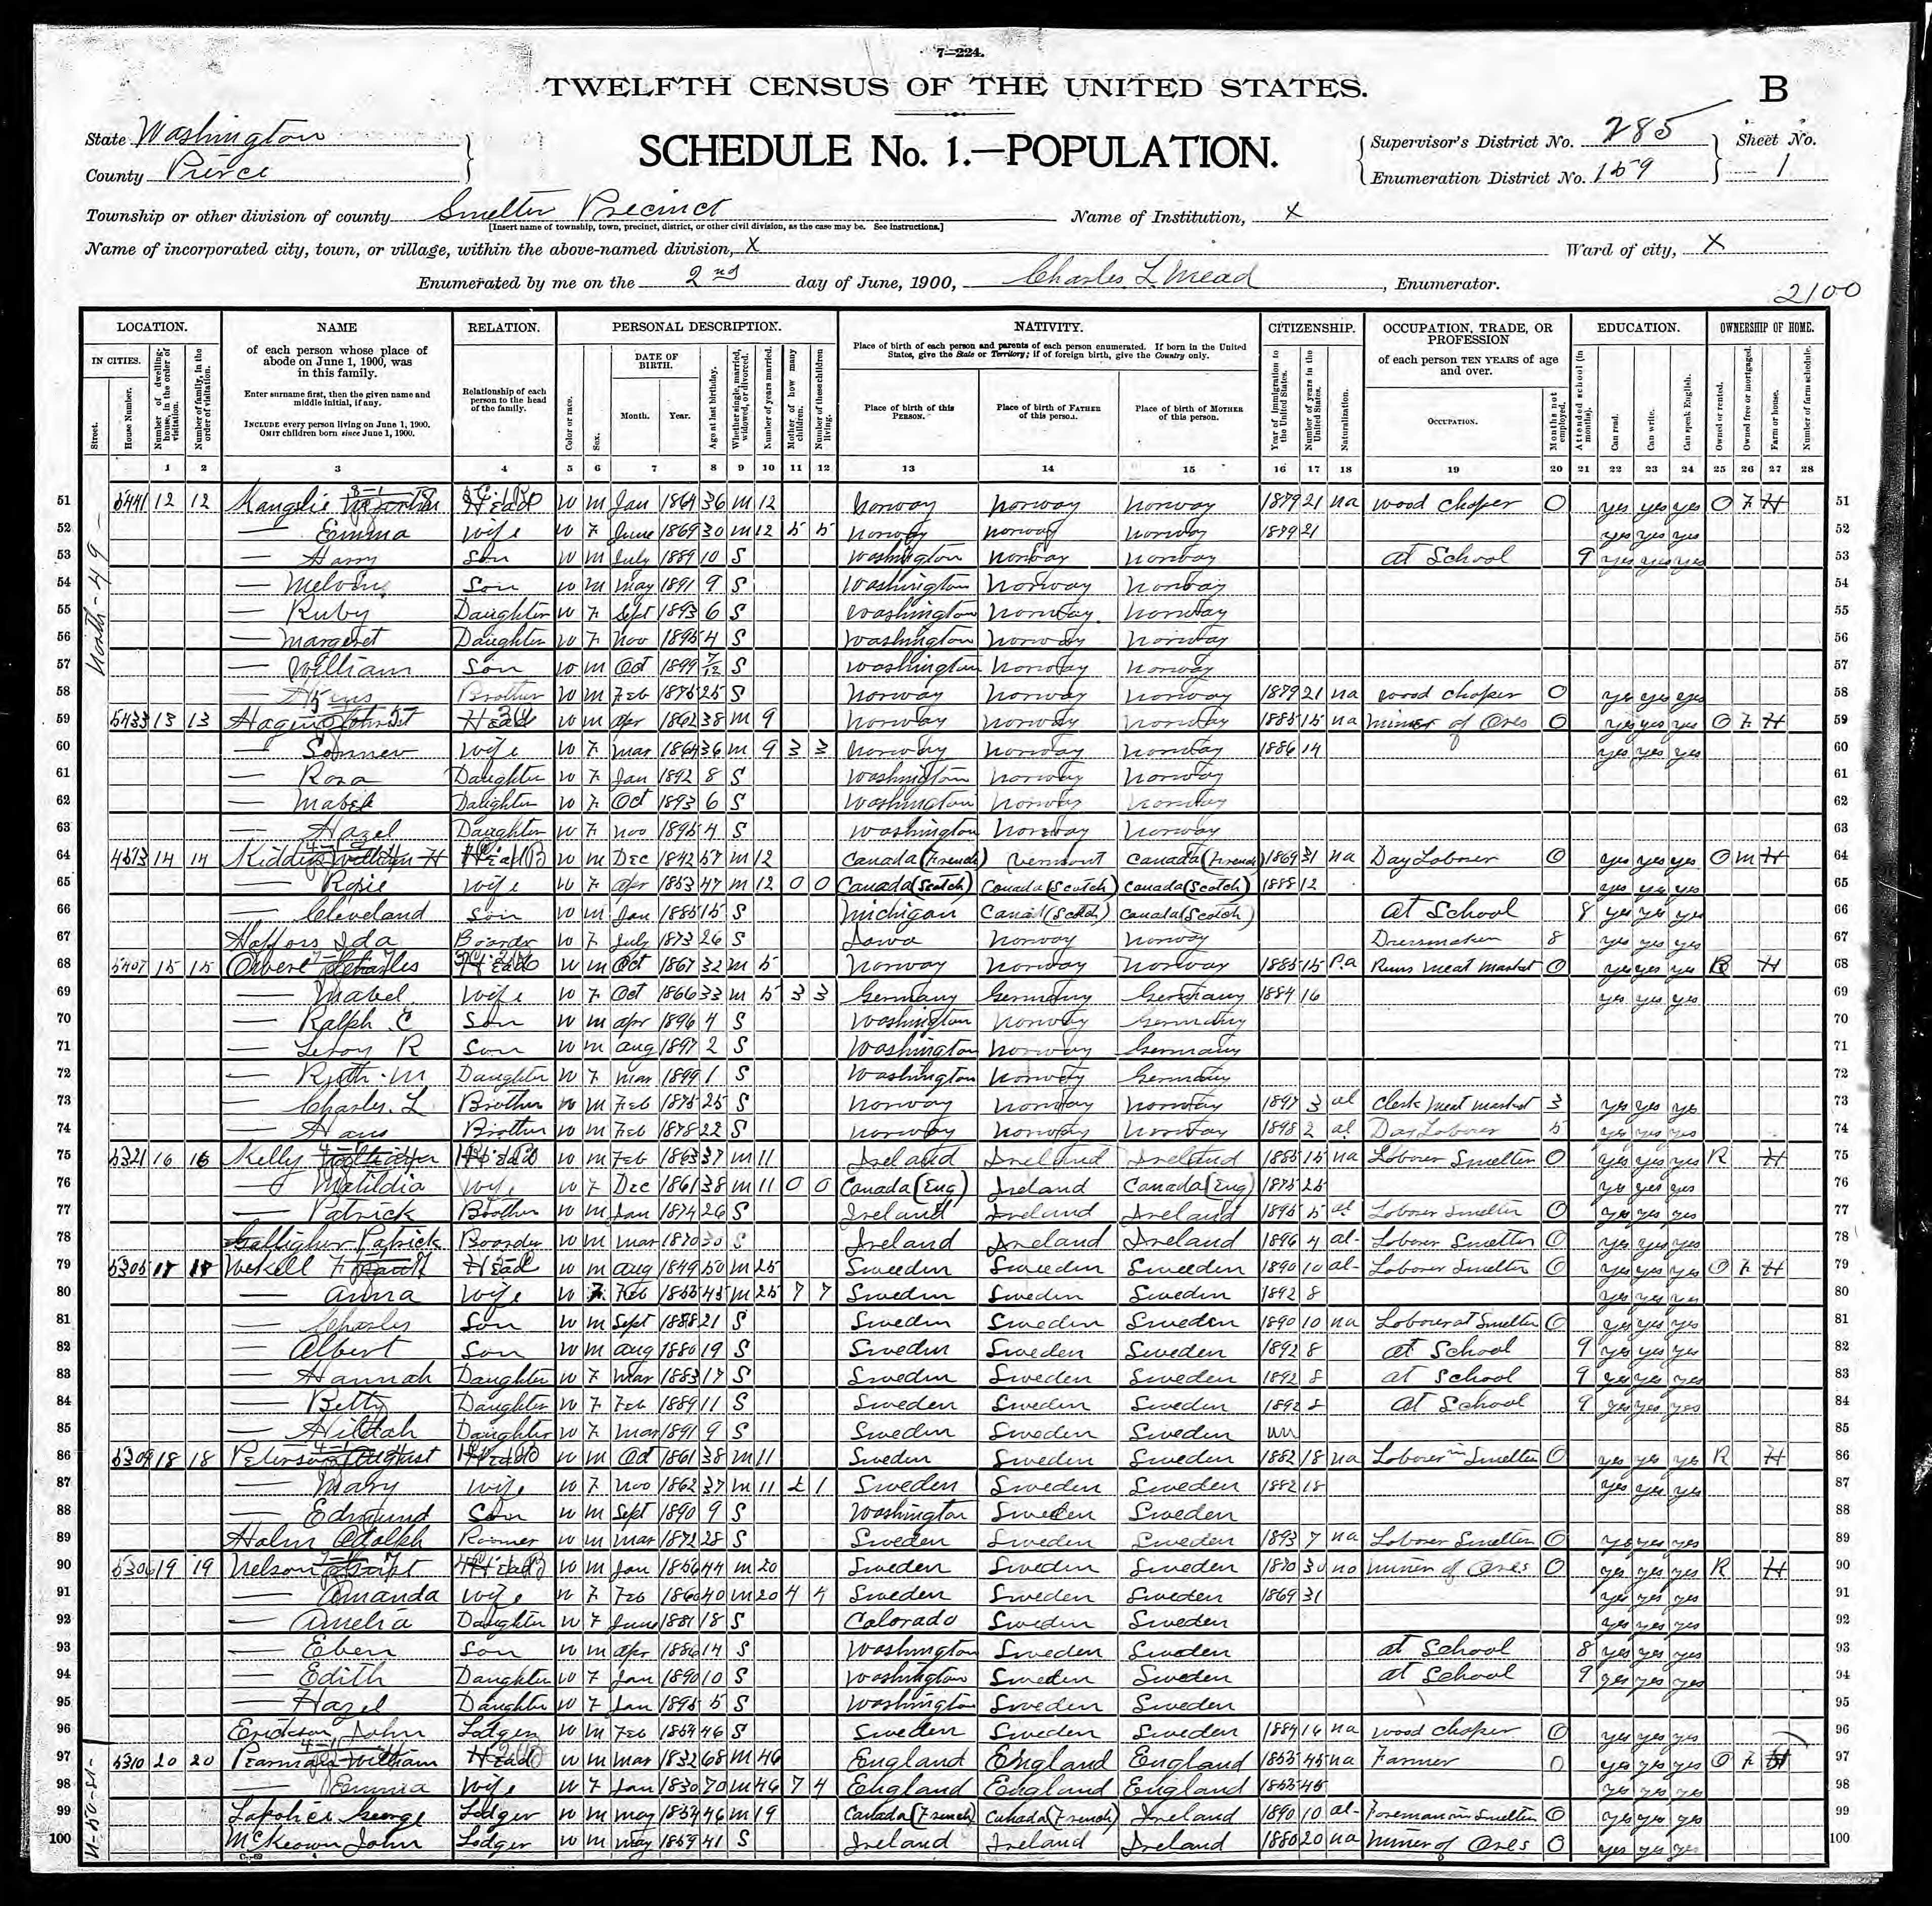 7—224.
TWELFTH CENSUS OF THE UNITED STATES.
B
State Washington
County Pierce
SCHEDULE No. 1.—POPULATION.
Supervisor's District No. 285
Enumeration District No. 159
Sheet No.
1
Township or other division of county Smelter Precinct
Name of Institution, X
[Insert name of township, town, precinct, district, or other civil division, as the case may be. See instructions.]
Name of incorporated city, town, or village, within the above-named division, X
Ward of city, X
Enumerated by me on the 2nd day of June, 1900, Charles L. Mead, Enumerator.
2100
LOCATION.
IN CITIES.
Street.
House Number.
Number of dwelling-house, in the order of visitation.
Number of family, in the order of visitation.
NAME
of each person whose place of abode on June 1, 1900, was in this family.
Enter surname first, then the given name and middle initial, if any.
INCLUDE every person living on June 1, 1900.
OMIT children born since June 1, 1900.
RELATION.
Relationship of each person to the head of the family.
PERSONAL DESCRIPTION.
Color or race.
Sex.
DATE OF BIRTH.
Month.
Year.
Age at last birthday.
Whether single, married, widowed, or divorced.
Number of years married.
Mother of how many children.
Number of these children living.
NATIVITY.
Place of birth of each person and parents of each person enumerated. If born in the United States, give the State or Territory; if of foreign birth, give the Country only.
Place of birth of this PERSON.
Place of birth of FATHER of this person.
Place of birth of MOTHER of this person.
CITIZENSHIP.
Year of immigration to the United States.
Number of years in the United States.
Naturalization.
OCCUPATION, TRADE, OR PROFESSION
of each person TEN YEARS of age and over.
OCCUPATION.
Months not employed.
EDUCATION.
Attended school (in months).
Can read.
Can write.
Can speak English.
OWNERSHIP OF HOME.
Owned or rented.
Owned free or mortgaged.
Farm or house.
Number of farm schedule.
1 2 3 4 5 6 7 8 9 10 11 12 13 14 15 16 17 18 19 20 21 22 23 24 25 26 27 28
North - 49 -
51 5441 12 12 Head W m Jan 1864 36 m 12 Norway Norway Norway 1879 21 na wood choper 0 yes yes yes O F H 51
52 — Emma Wife W F June 1869 30 m 12 5 5 Norway Norway Norway 1879 21 yes yes yes 52
53 — Harry Son W m July 1889 10 S Washington Norway Norway At School 9 yes yes yes 53
54 — Melvin Son W m May 1891 9 S Washington Norway Norway 54
55 — Ruby Daughter W F Sept 1893 6 S Washington Norway Norway 55
56 — Margaret Daughter W F Nov 1895 4 S Washington Norway Norway 56
57 — William Son W m Oct 1899 7/12 S Washington Norway Norway 57
58 — Brother W m Feb 1875 25 S Norway Norway Norway 1879 21 na wood choper 0 yes yes yes 58
59 5433 13 13 Head W m Apr 1862 38 m 9 Norway Norway Norway 1885 15 na miner of Ores 0 yes yes yes O F H 59
60 — Wife W F Mar 1864 36 m 9 3 3 Norway Norway Norway 1886 14 yes yes yes 60
61 — Rosa Daughter W F Jan 1892 8 S Washington Norway Norway 61
62 — Mabel Daughter W F Oct 1893 6 S Washington Norway Norway 62
63 — Hazel Daughter W F Nov 1895 4 S Washington Norway Norway 63
64 4513 14 14 William H Head W m Dec 1842 57 m 12 Canada (French) Vermont Canada (French) 1869 31 na Day Laborer 0 yes yes yes O M H 64
65 — Rosie Wife W F Apr 1853 47 m 12 0 0 Canada (Scotch) Canada (Scotch) Canada (Scotch) 1888 12 yes yes yes 65
66 — Cleveland Son W m Jan 1885 15 S Michigan Canad (Scotch) Canada (Scotch) At School 8 yes yes yes 66
67 Ida Boarder W F July 1873 26 S Iowa Norway Norway Dressmaker 8 yes yes yes 67
68 5407 15 15 Charles Head W m Oct 1867 32 m 5 Norway Norway Norway 1885 15 Pa Runs Meat Market 0 yes yes yes R H 68
69 — Mabel Wife W F Oct 1866 33 m 5 3 3 Germany Germany Germany 1884 16 yes yes yes 69
70 — Ralph E Son W m Apr 1896 4 S Washington Norway Germany 70
71 — Leroy R Son W m Aug 1897 2 S Washington Norway Germany 71
72 — Ruth M Daughter W F Mar 1899 1 S Washington Norway Germany 72
73 — Charles L Brother W m Feb 1875 25 S Norway Norway Norway 1897 3 al Clerk Meat Market 3 yes yes yes 73
74 — Hans Brother W m Feb 1878 22 S Norway Norway Norway 1898 2 al Day Laborer 5 yes yes yes 74
75 5321 16 16 Kelly Head W m Feb 1863 37 m 11 Ireland Ireland Ireland 1885 15 na Laborer Smelter 0 yes yes yes R H 75
76 — Matildia Wife W F Dec 1861 38 m 11 0 0 Canada (Eng) Ireland Canada (Eng) 1875 25 yes yes yes 76
77 — Patrick Brother W m Jan 1874 26 S Ireland Ireland Ireland 1895 5 al Laborer Smelter 0 yes yes yes 77
78 Galligher Patrick Boarder W m Mar 1870 30 S Ireland Ireland Ireland 1896 4 al Laborer Smelter 0 yes yes yes 78
79 5305 17 17 Wekell Head W m Aug 1849 50 m 25 Sweeden Sweeden Sweeden 1890 10 al Laborer Smelter 0 yes yes yes O F H 79
80 — Anna Wife W F Feb 1855 45 m 25 7 7 Sweden Sweden Sweden 1892 8 yes yes yes 80
81 — Charley Son W m Sept 1888 21 S Sweden Sweden Sweden 1890 10 na Laborer at Smelter 0 yes yes yes 81
82 — Albert Son W m Aug 1880 19 S Sweden Sweden Sweden 1892 8 at School 9 yes yes yes 82
83 — Hannah Daughter W F Mar 1883 17 S Sweden Sweden Sweden 1892 8 at School 9 yes yes yes 83
84 — Betty Daughter W F Feb 1889 11 S Sweden Sweden Sweden 1892 8 At School 9 yes yes yes 84
85 — Hildah Daughter W F Mar 1891 9 S Sweden Sweden Sweden un 85
86 5309 18 18 Peterson August Head W m Oct 1861 38 m 11 Sweden Sweden Sweden 1882 18 na Laborer in Smelter 0 yes yes yes R H 86
87 — Mary Wife W F Nov 1862 37 m 11 1 Sweden Sweden Sweden 1882 18 yes yes yes 87
88 — Edmund Son W m Sept 1890 9 S Washington Sweden Sweden 88
89 Holm Adolph Roomer W m Mar 1872 28 S Sweden Sweden Sweden 1893 7 na Laborer Smelter 0 yes yes yes 89
90 5306 19 19 Nelson Head W m Jan 1856 44 m 20 Sweden Sweden Sweden 1870 30 no miner of Ores 0 yes yes yes R H 90
91 — Amanda Wife W F Feb 1860 40 m 20 4 4 Sweden Sweden Sweden 1869 31 yes yes yes 91
92 — Amelia Daughter W F June 1881 18 S Colorado Sweden Sweden yes yes yes 92
93 — Eben Son W m Apr 1886 14 S Washington Sweden Sweden at School 8 yes yes yes 93
94 — Edith Daughter W F Jan 1890 10 S Washington Sweden Sweden at School 9 yes yes yes 94
95 — Hazel Daughter W F Jan 1895 5 S Washington Sweden Sweden 95
96 Erickson John Lodger W m Feb 1854 46 S Sweden Sweden Sweden 1884 16 na wood choper 0 yes yes yes 96
N-50-51-
97 5310 20 20 William Head W m Mar 1832 68 m 46 England England England 1853 45 na Farmer 0 yes yes yes O F H 97
98 — Emma Wife W F Jan 1830 70 m 46 7 4 England England England 1853 45 yes yes yes 98
99 George Lodger W m May 1854 46 m 19 Canada (French) Canada (French) Ireland 1890 10 al Foreman in Smelter 0 yes yes yes 99
100 McKeown John Lodger W m May 1859 41 S Ireland Ireland Ireland 1880 20 na Miner of Ores 0 yes yes yes 100